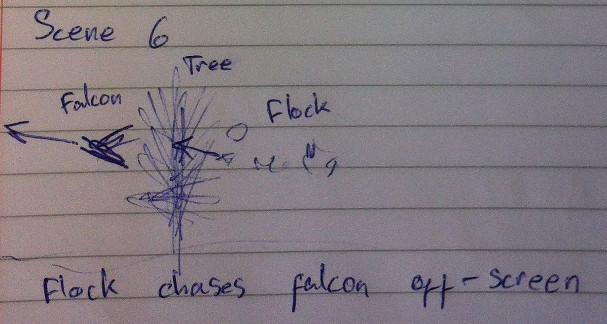 Scene 6
Tree
Falcon
Flock
Flock chases falcon off-screen